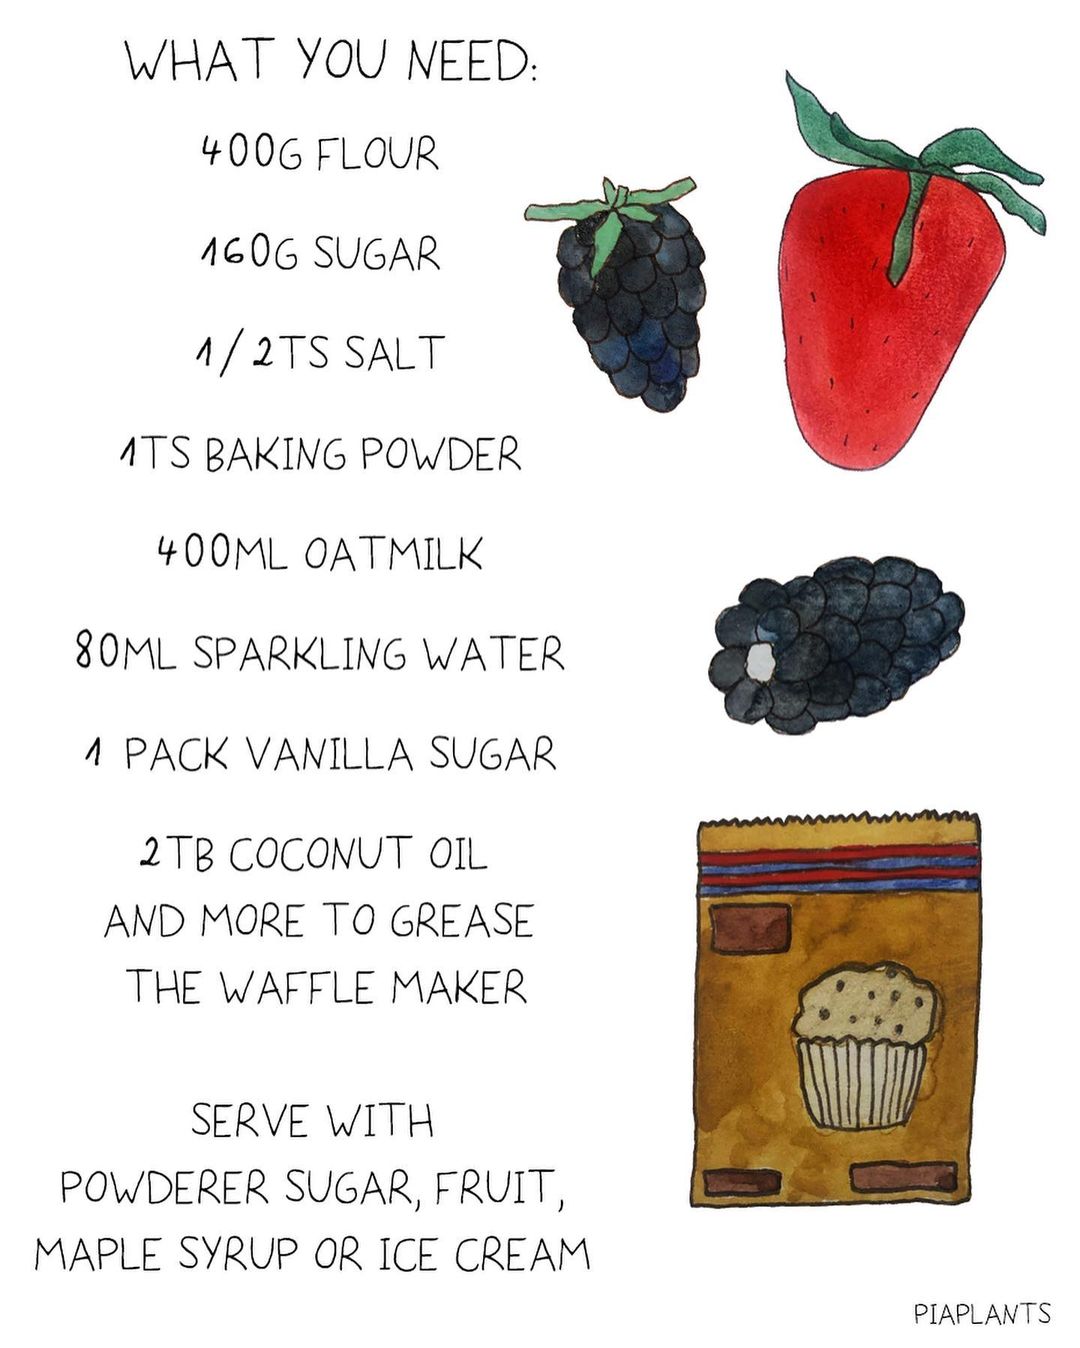 WHAT YOU NEED:
400G FLOUR
160G SUGAR
1/2TS SALT
1TS BAKING POWDER
400ML OATMILK
80ML SPARKLING WATER
1 PACK VANILLA SUGAR
2TB COCONUT OIL
AND MORE TO GREASE
THE WAFFLE MAKER
SERVE WITH
POWDERER SUGAR, FRUIT,
MAPLE SYRUP OR ICE CREAM
PIAPLANTS